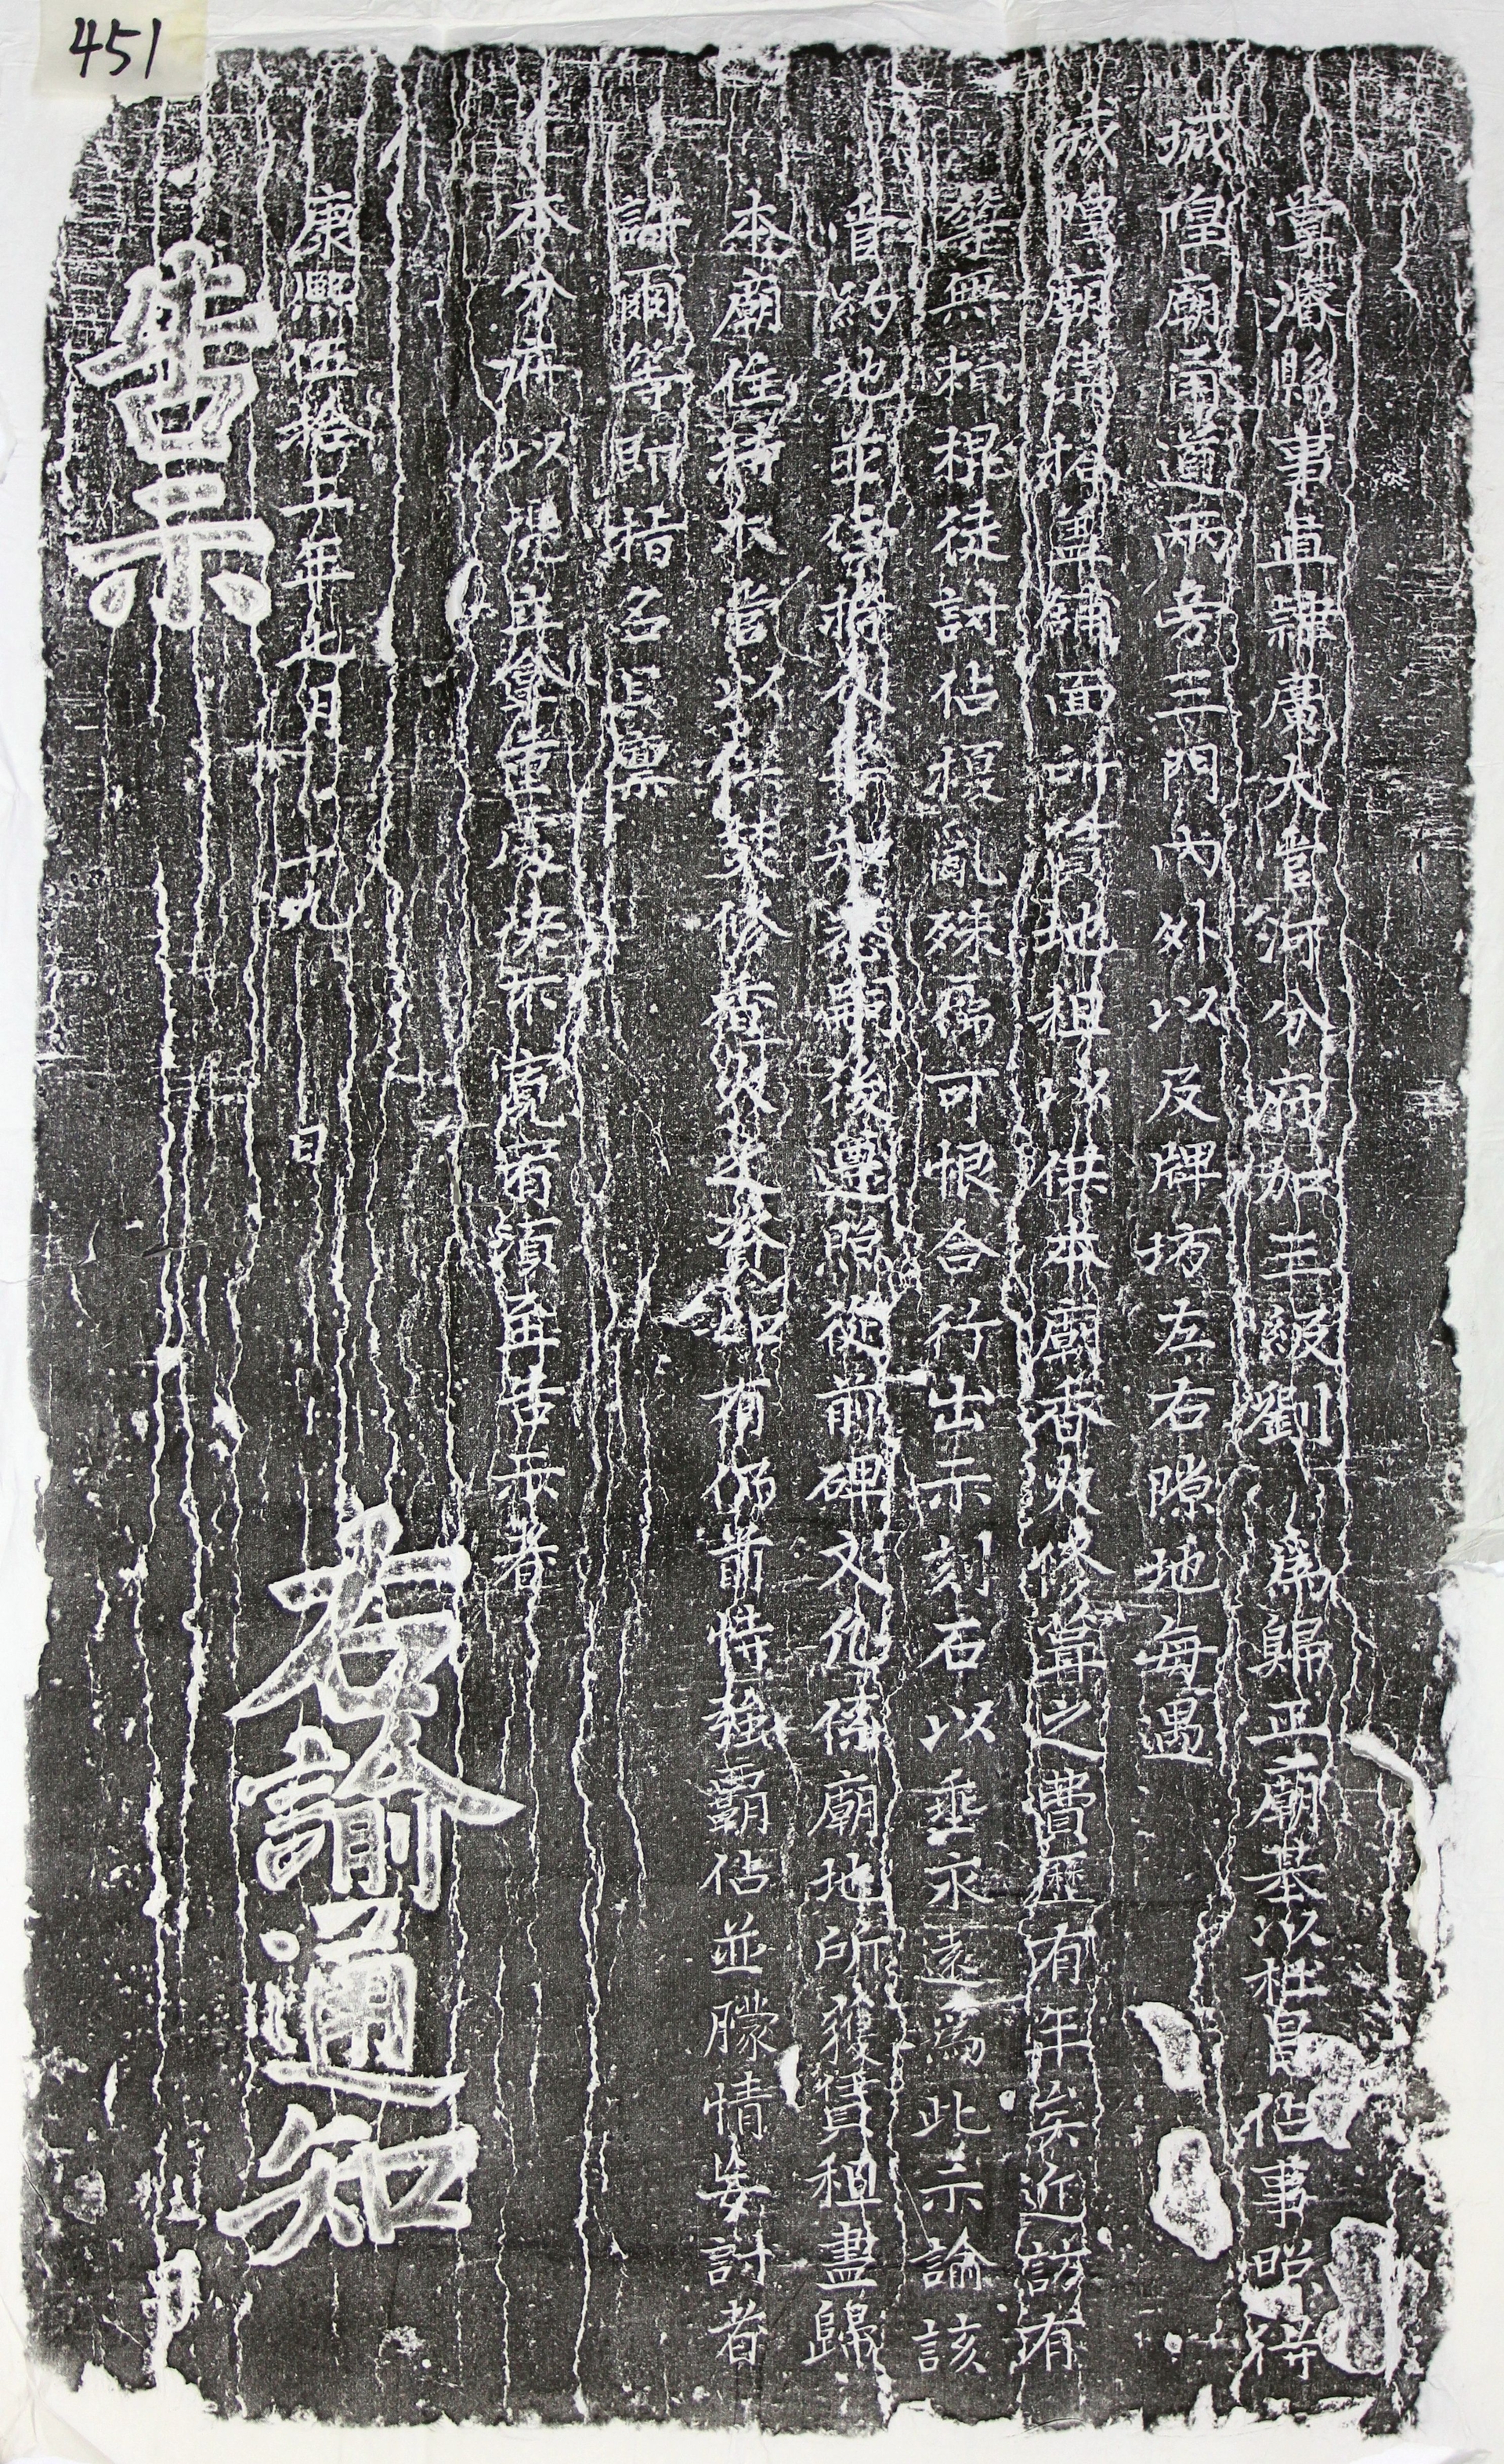 451
掌濬縣事直隸廣大管河分府加三級劉 為歸正廟基以杜冒佔事照得
城隍廟甬道兩旁三門內外以及牌坊左右隙地每遇
城隍廟 搭蓋鋪面所 地租以供本廟香火修葺之費歷有年矣近訪有
無賴棍徒討佔擾亂殊屬可恨合行出示刻石以垂永遠為此示諭該
會約地並 嗣後遵照從前碑文凡係廟地所獲賃租盡歸
本廟住持 管以供焚修香火之 如有仍前恃強霸佔並朦情妄討者
許爾等即指名具稟
本分府以凭立拿重處決不寬宥須至告示者
康熙伍拾三年七月十九 日
告示
右諭通知